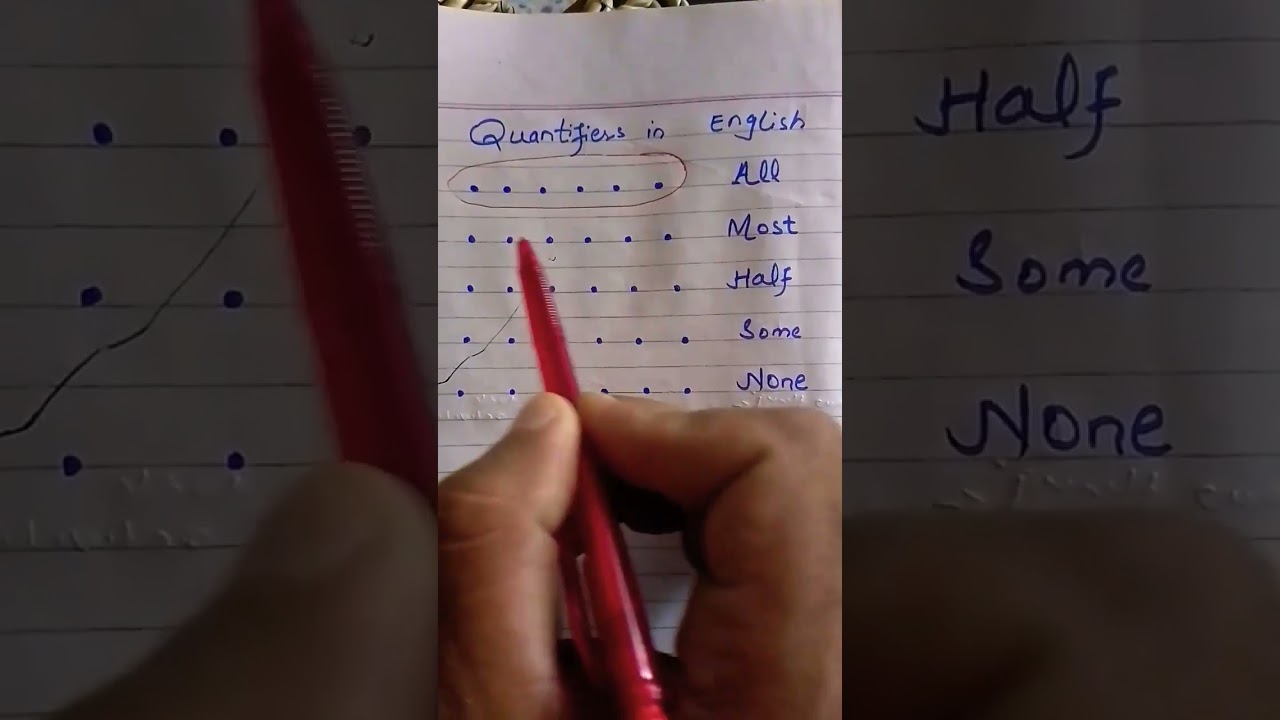 Quantifiers in English
All
Most
Half
Some
None
Half
Some
None